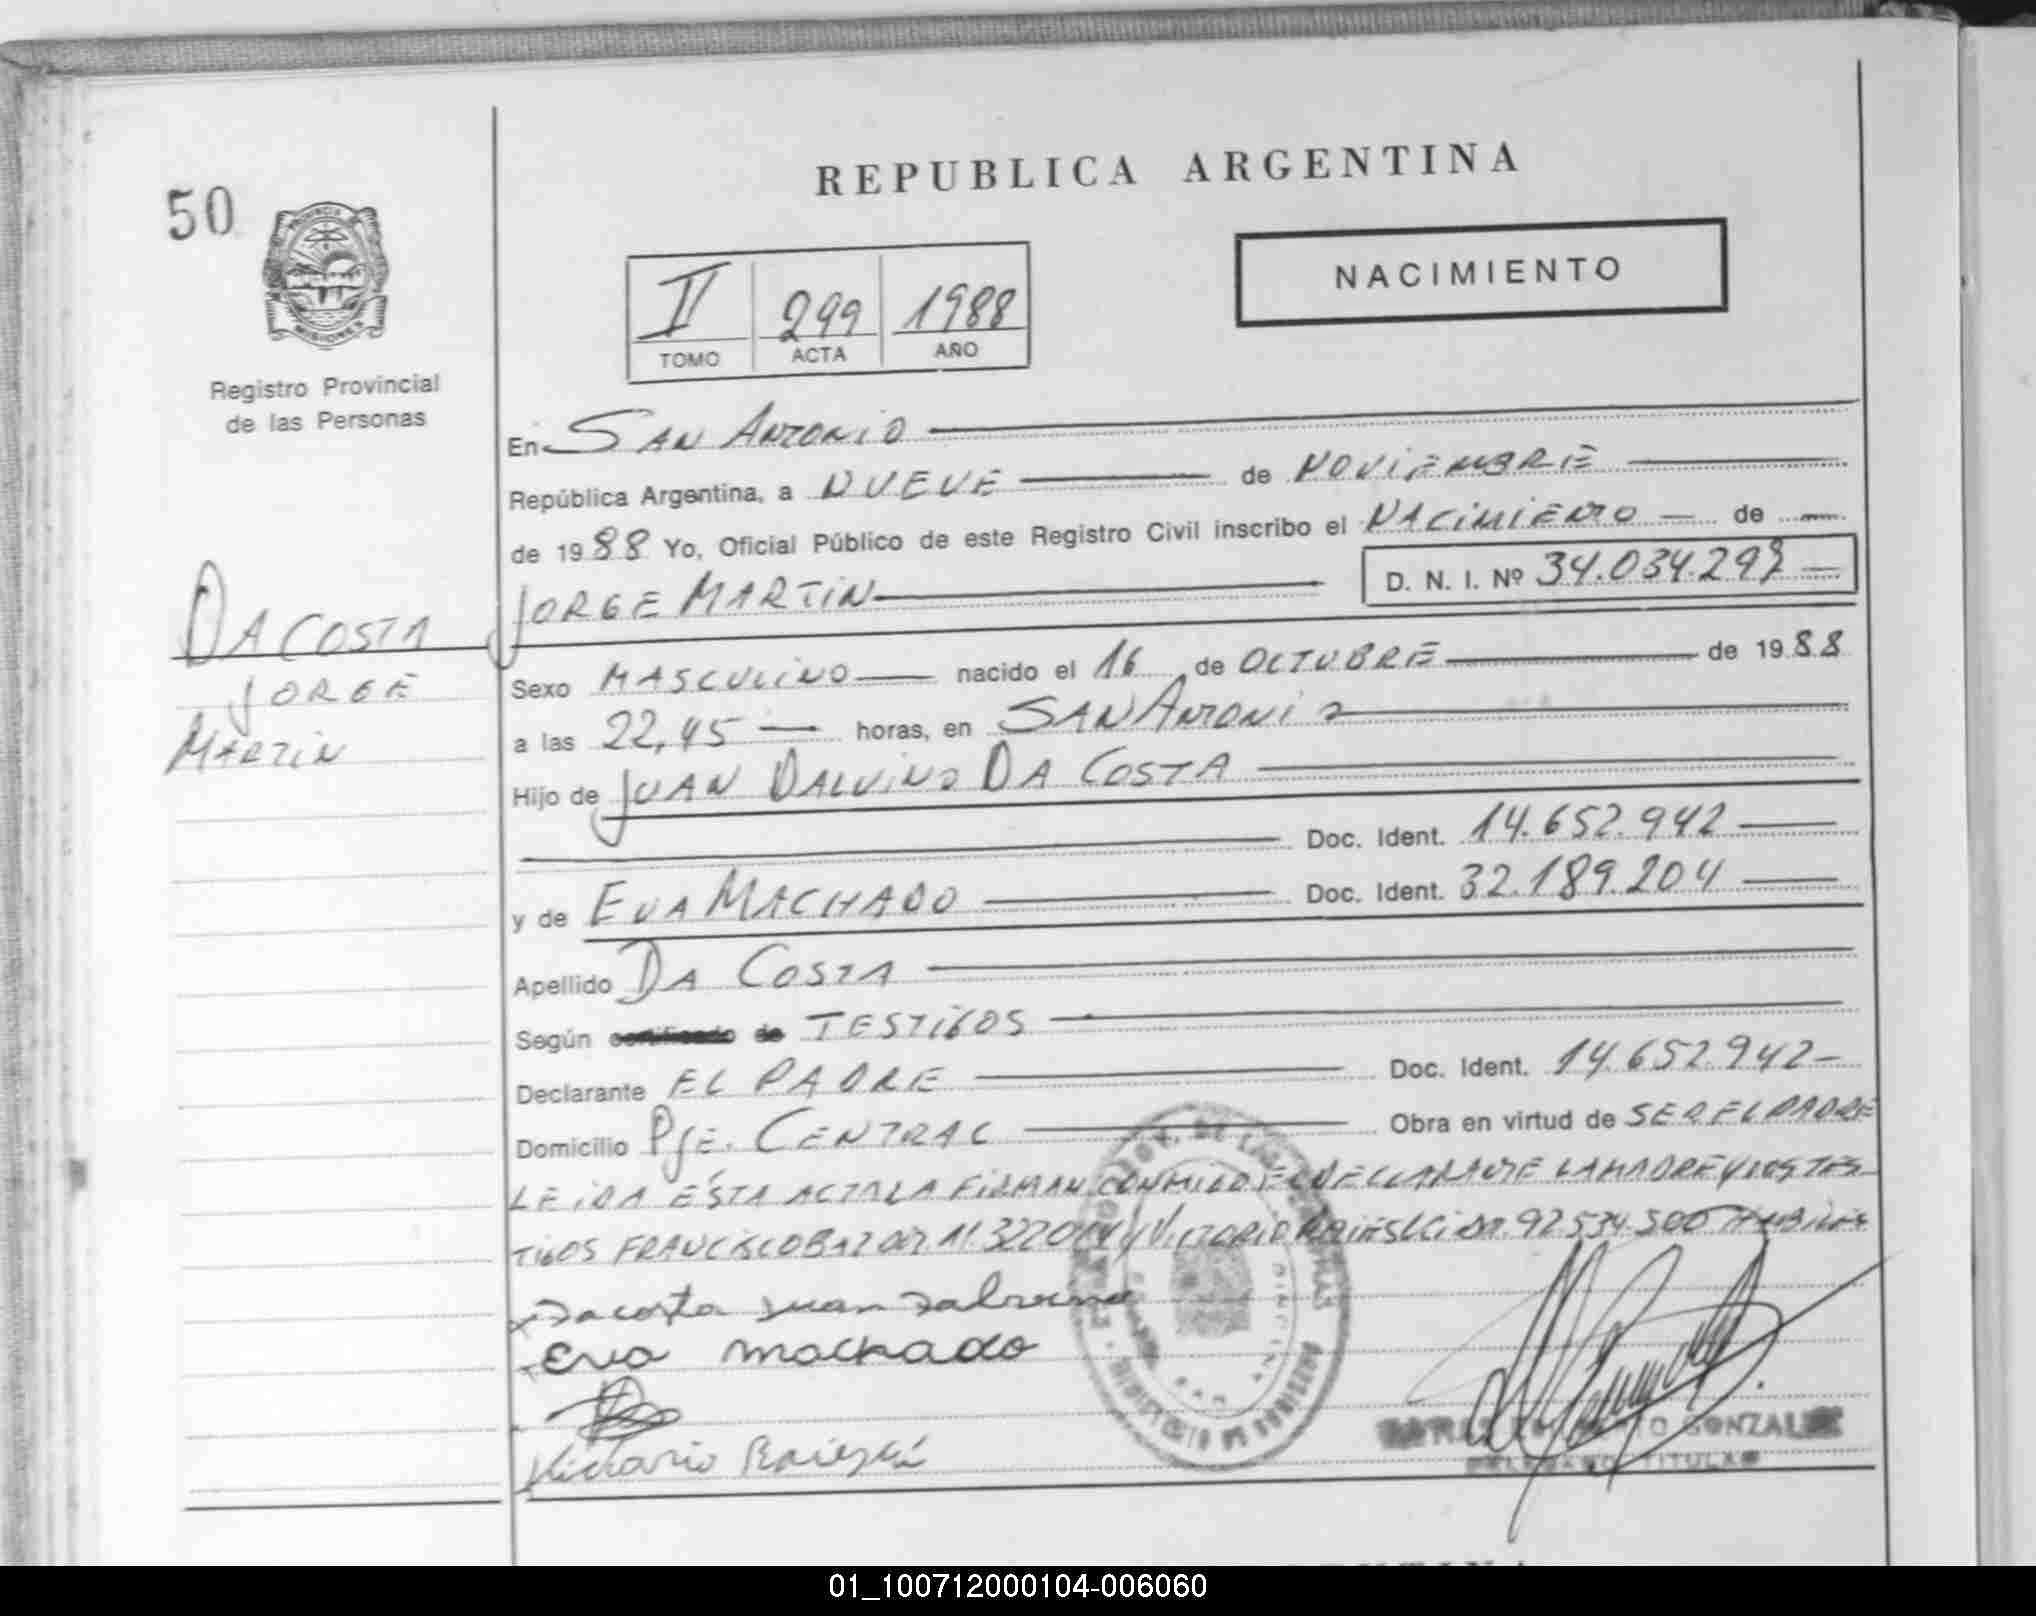 REPUBLICA ARGENTINA
50
PROVINCIA DE
MISIONES
NACIMIENTO
II 299 1988
TOMO ACTA AÑO
Registro Provincial
de las Personas
En SAN ANTONIO
República Argentina, a NUEVE de NOVIEMBRE
de 1988 Yo, Oficial Público de este Registro Civil inscribo el NACIMIENTO de
JORGE MARTIN D. N. I. Nº 34.034.298
DA COSTA
JORGE
MARTIN
Sexo MASCULINO nacido el 16 de OCTUBRE de 1988
a las 22,45 horas, en SAN ANTONIO
Hijo de JUAN DALVINO DA COSTA
Doc. Ident. 14.652.942
y de EVA MACHADO Doc. Ident. 32.189.204
Apellido DA COSTA
Según certificado de TESTIGOS
Declarante EL PADRE Doc. Ident. 14.652.942
Domicilio Pje. CENTRAL Obra en virtud de SER EL PADRE
LEIDA ÉSTA ACTA LA FIRMAN CONMIGO EL DECLARANTE LA MADRE Y LOS TES-
TIGOS FRANCISCO Y VICTORIO 92.534.500
Dacosta Juan Dalvino
Eva machado
Victorio
GONZALEZ
DELEGADO TITULAR
01_100712000104-006060